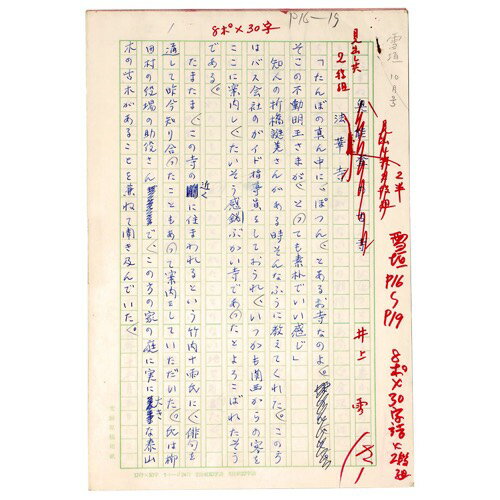 雪垣 10月号
P16-19
8ポ×30字
1
雪垣
P16
〜
P19
8ポ×30字詰×2段組
2半
見出し大
2段組
法華寺
井上 雪
「たんぼの真ん中に、ぽつんとあるお寺なのよ。
そこの不動明王さまが、とっても素朴でいい感じ」
知人の折橋
さんがある時そんなふうに教えてくれた。この方
はバス会社のガイド指導員をしておられ、いつかも関西からの客を
ここに案内し、たいそう感銘ぶかい寺であったとよろこばれたそう
である。
たまたま、この寺の近くに住まわれるという竹内十雨氏に、俳句を
通して昨今知り合ったこともあって案内をしていただいた。氏は柳
田村の役場の助役さんで、この方の家の庭に実に大きな泰山
木の古木があることを兼ねて聞き及んでいた。